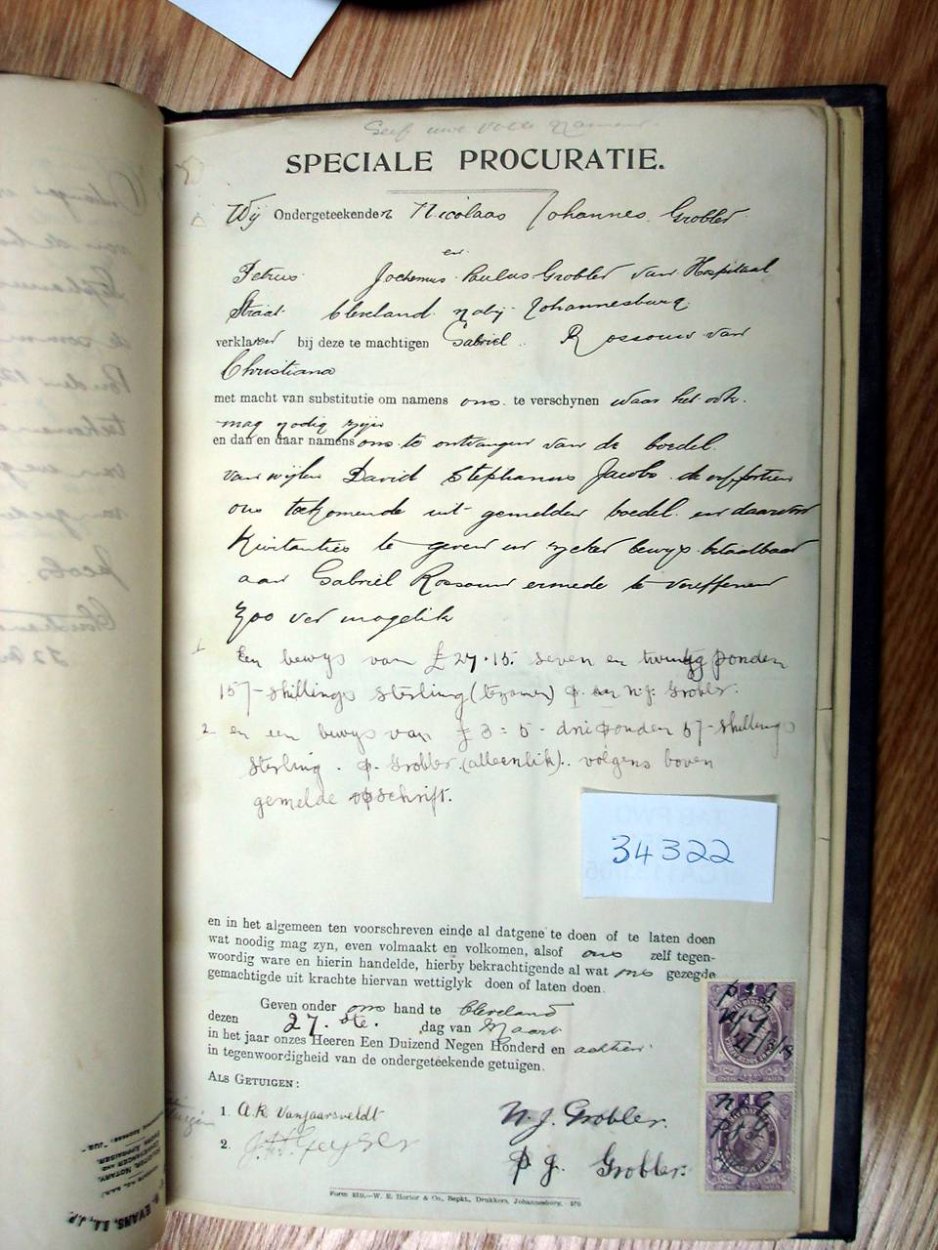 Geef uwe Volle Namen
SPECIALE PROCURATIE.
Wij Ondergeteekenden Nicolaas Johannes Grobler
en
Petrus Jochemus Paulus Grobler van Hospitaal
Straat Cleveland naby Johannesburg
verklaren bij deze te machtigen Gabriel Rossouw van
Christiana
met macht van substitutie om namens ons te verschynen waar het ook
mag nodig zijn
en dan en daar namens ons te ontvangen van de boedel
van wijlen David Stephanus Jacobs de erfportien
ons toekomende uit gemelden boedel en daarvoor
Kwitanties te geven en zeker bewys betaalbaar
aan Gabriel Rossouw ermede te vereffenen
zoo ver mogelik
1 Een bewys van £27.15. seven en twintig ponden
15/- shillings sterling (tezamen) p. en N.J. Grobler.
2 en een bewys van £3 = 5 - drie ponden 5/- shillings
sterling. P. Grobler (alleenlik).. volgens boven
gemelde opschrift.
34322
en in het algemeen ten voorschreven einde al datgene te doen of te laten doen
wat noodig mag zyn, even volmaakt en volkomen, alsof ons zelf tegen-
woordig ware en hierin handelde, hierby bekrachtigende al wat ons gezegde
gemachtigde uit krachte hiervan wettiglyk doen of laten doen.
Geven onder ons hand te Cleveland
dezen 27.ste. dag van Maart
in het jaar onzes Heeren Een Duizend Negen Honderd en achtien
in tegenwoordigheid van de ondergeteekende getuigen.
ALS GETUIGEN:
1. A.K. Vanjaarsveldt
N. J. Grobler.
2. J.H. Geyser
P J. Grobler.
Form 219.—W. E. Horter & Co., Bepkt., Drukkers, Johannesburg.
P J G
N J G
27/3/18
N J G
P J G
EVANS, J.P.